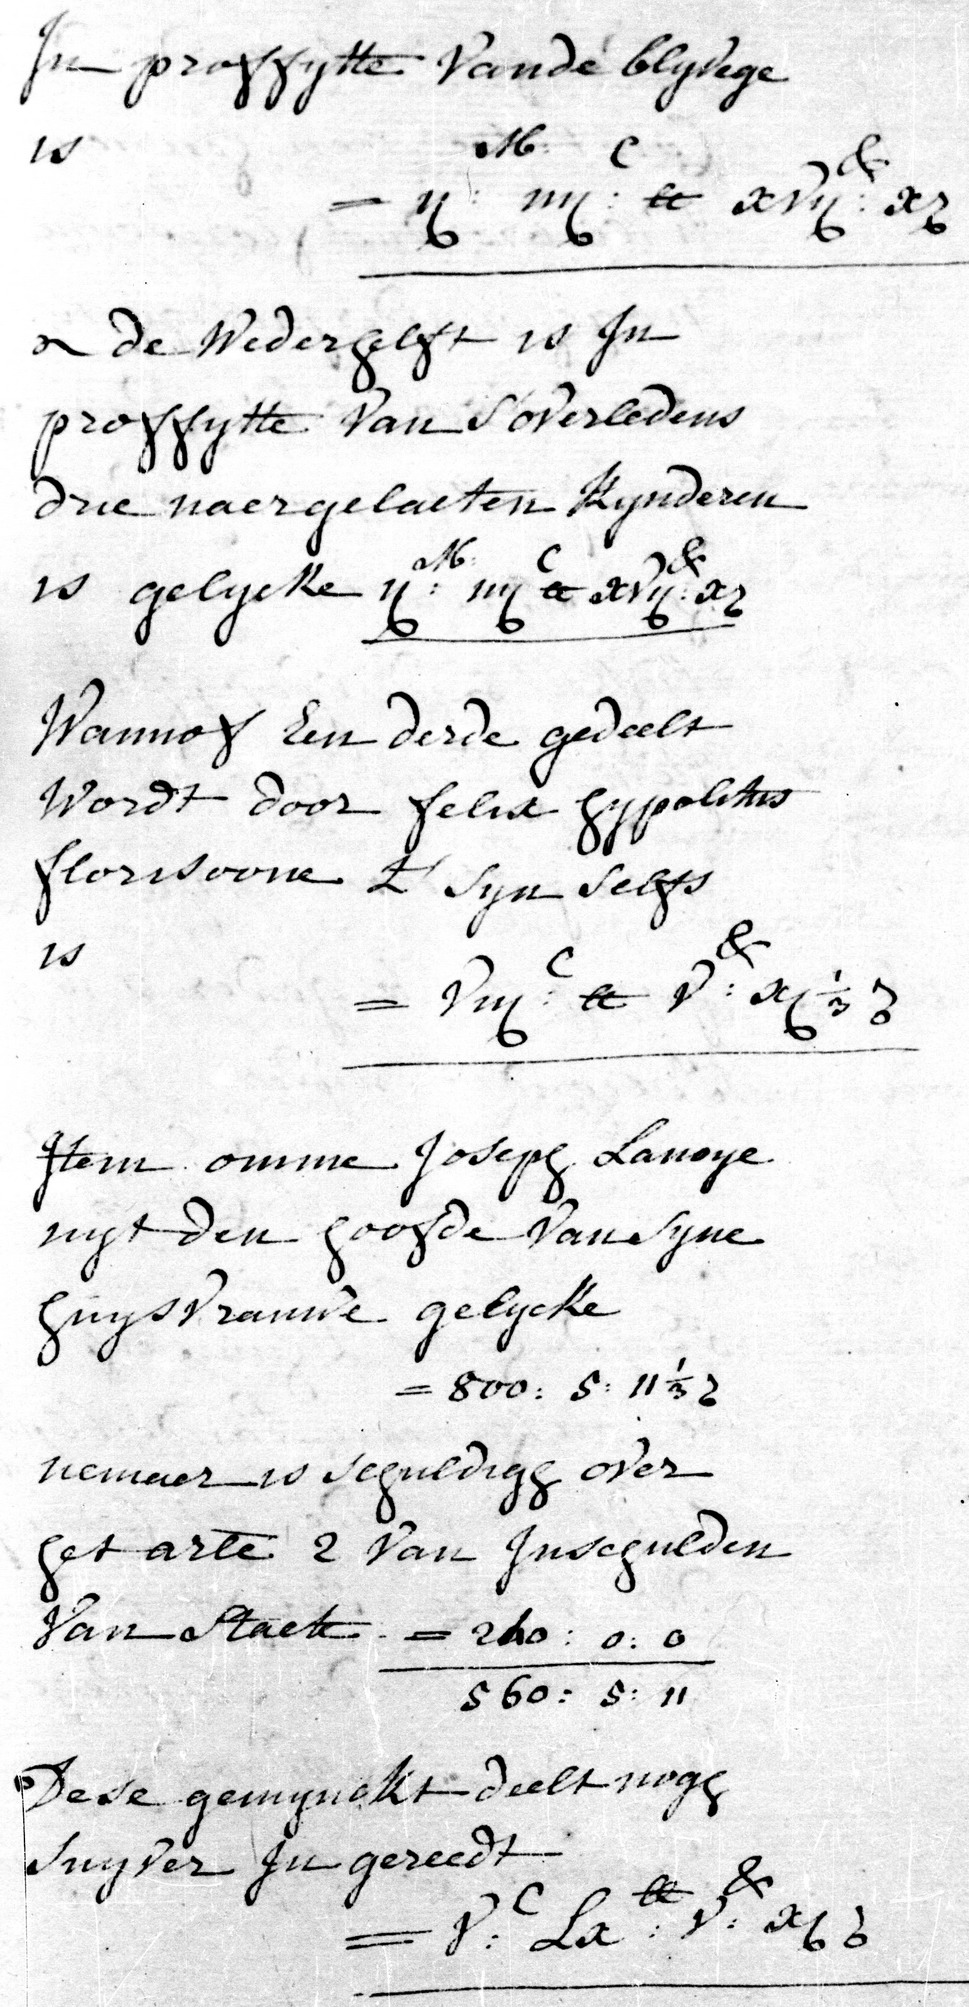 In proffytte vande blyvege
is
= ij M: iiij C: lt xvij &: x ϑ
∾ de wederhelft is In
proffytte van s'overledens
drie naergelaeten kynderen
is gelycke ij M: iiij C lt xvij &: x ϑ
Wannof Een derde gedeelt
wordt door felix hypolitus
florisoone t' syn selfs
is
= viij C: lt v &: xj ⅓ ϑ
Item omme Joseph Lanoye
uyt den hoofde van syne
huysvrauwe gelycke
= 800: 5: 11 ⅓ ϑ
nemaer is schuldigh over
het arte 2 van Inschulden
van Staete = 240: 0: 0
560: 5: 11
Dese gemynckt deelt nogh
suyver In gereedt
= v: C Lx lt: v &: xj ϑ